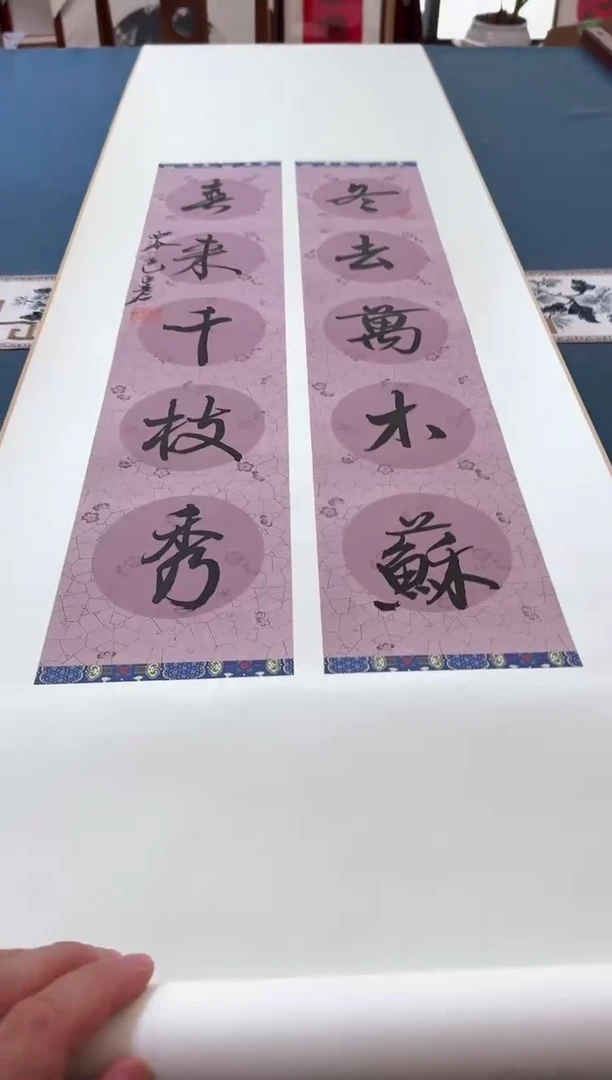 冬去萬木蘇
春来千枝秀